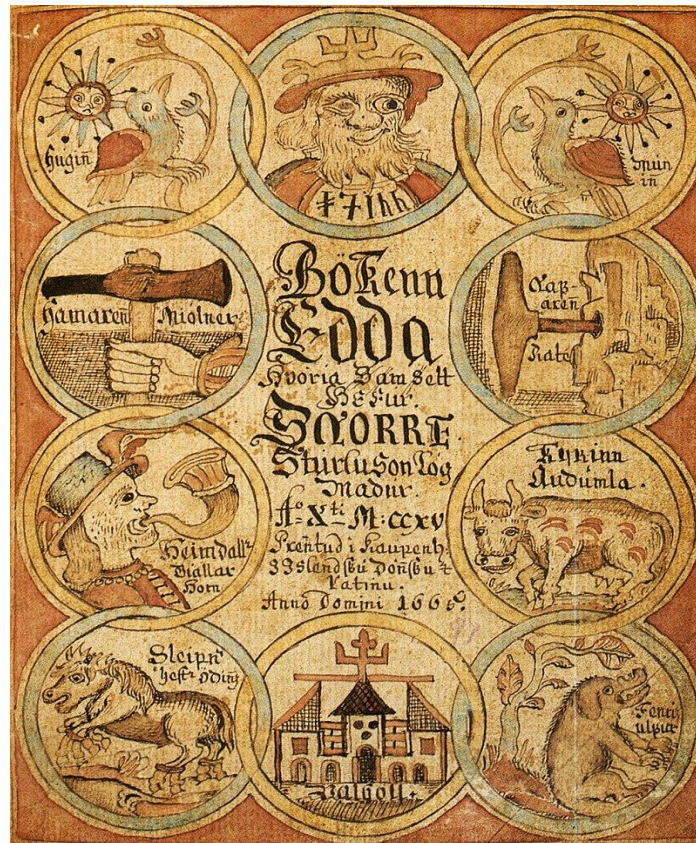 Hugin
Mun
in
Hamaren Miolner
Nafar-
aren
Rate
Bökenn
Edda
Hvoria Samsett
Hefur.
SNORRE
Sturluson Løg
madur.
Aº Xti M:ccxv
Prentud i Kaupenh:
I Islendsku Dönsku &
Latinu.
Anno Domini 1665
Heimdallr
Giallar
Horn
Kyrinn
Audumla.
Sleipnr
heftr Oding
Valhöll.
Fenri
ulfur